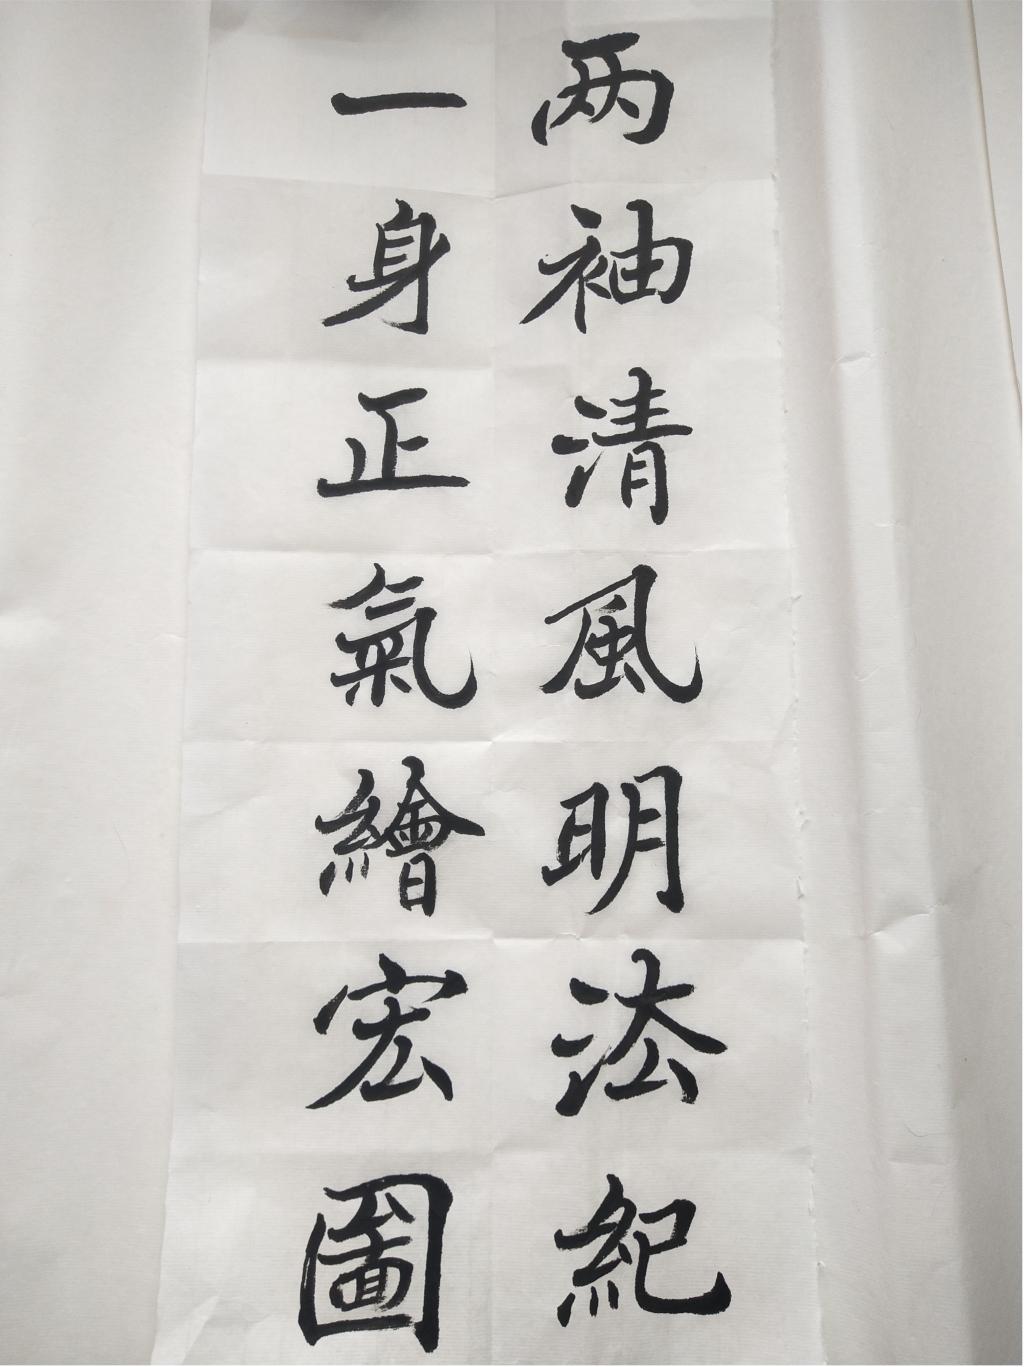 两袖清風明法紀
一身正氣繪宏圖